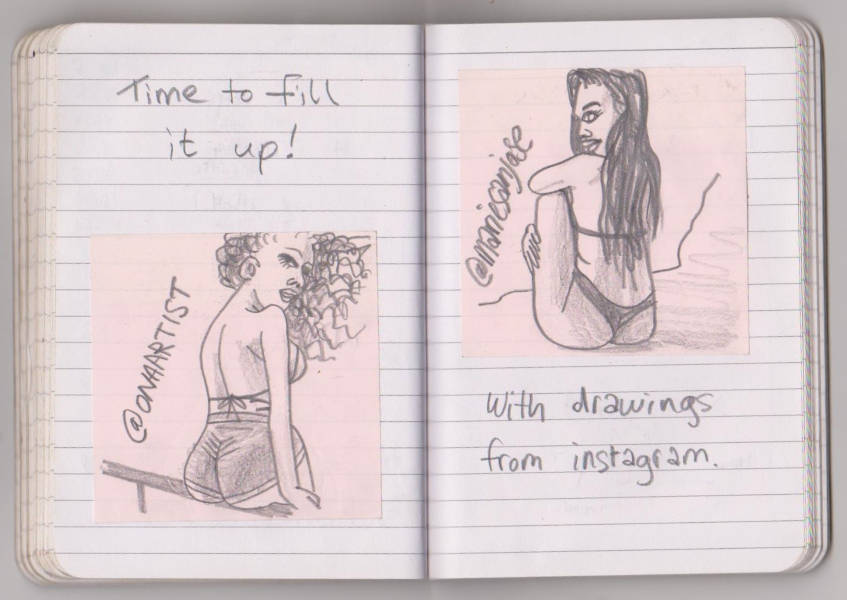 Time to fill
it up!
@ONAARTIST
with drawings
from instagram.